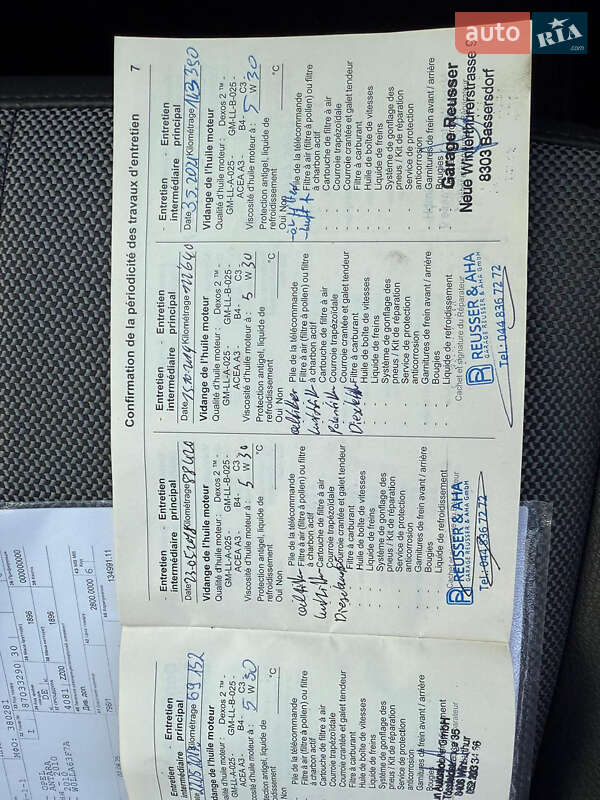 auto RIA.com
7
Confirmation de la périodicité des travaux d'entretien
Entretien intermédiaire
Entretien principal
Date 3.5.2021 Kilométrage 143350
Vidange de l'huile moteur
Qualité d'huile moteur : Dexos 2 ™ -
GM-LL-A-025 - GM-LL-B-025 -
ACEA A3 - B4 - C3
Viscosité d'huile moteur à : 5 W 30
Protection antigel, liquide de
refroidissement °C
Oui Non
Pile de la télécommande
Filtre à air (filtre à pollen) ou filtre
à charbon actif
Cartouche de filtre à air
Courroie trapézoïdale
Courroie crantée et galet tendeur
Filtre à carburant
Huile de boîte de vitesses
Liquide de freins
Système de gonflage des
pneus / Kit de réparation
Service de protection
anticorrosion
Garnitures de frein avant / arrière
Bougies
Garage Reusser
Neue Winterthurerstrasse 9
8303 Bassersdorf
Entretien intermédiaire
Entretien principal
Date Kilométrage
Vidange de l'huile moteur
Qualité d'huile moteur : Dexos 2 ™ -
GM-LL-A-025 - GM-LL-B-025 -
ACEA A3 - B4 - C3
Viscosité d'huile moteur à : 5 W 30
Protection antigel, liquide de
refroidissement °C
Oui Non
Pile de la télécommande
Filtre à air (filtre à pollen) ou filtre
à charbon actif
Cartouche de filtre à air
Courroie trapézoïdale
Courroie crantée et galet tendeur
Filtre à carburant
Huile de boîte de vitesses
Liquide de freins
Système de gonflage des
pneus / Kit de réparation
Service de protection
anticorrosion
Garnitures de frein avant / arrière
Bougies
Liquide de refroidissement
Cachet et signature du Réparateur
REUSSER & AHA
GARAGE REUSSER & AHA GMBH
Tel. 044 836 72 72
Entretien intermédiaire
Entretien principal
Date Kilométrage 88420
Vidange de l'huile moteur
Qualité d'huile moteur : Dexos 2 ™ -
GM-LL-A-025 - GM-LL-B-025 -
ACEA A3 - B4 - C3
Viscosité d'huile moteur à : 5 W 30
Protection antigel, liquide de
refroidissement °C
Oui Non
Pile de la télécommande
Filtre à air (filtre à pollen) ou filtre
à charbon actif
Cartouche de filtre à air
Courroie trapézoïdale
Courroie crantée et galet tendeur
Filtre à carburant
Huile de boîte de vitesses
Liquide de freins
Système de gonflage des
pneus / Kit de réparation
Service de protection
anticorrosion
Garnitures de frein avant / arrière
Bougies
Liquide de refroidissement
REUSSER & AHA
GARAGE REUSSER & AHA GMBH
Tel. 044 836 72 72
Entretien intermédiaire
Entretien principal
Kilométrage 69 152
Vidange de l'huile moteur
Qualité d'huile moteur : Dexos 2 ™ -
GM-LL-A-025 - GM-LL-B-025 -
ACEA A3 - B4 - C3
Viscosité d'huile moteur à : 5 W 30
Protection antigel, liquide de
refroidissement °C
Oui Non
Pile de la télécommande
Filtre à air (filtre à pollen) ou filtre
à charbon actif
Cartouche de filtre à air
Courroie trapézoïdale
Courroie crantée et galet tendeur
Filtre à carburant
Huile de boîte de vitesses
Liquide de freins
Système de gonflage des
pneus / Kit de réparation
Service de protection
anticorrosion
Garnitures de frein avant / arrière
Bougies
00000000
1896
1896
2800.0000 6
13499111
87033290 30
4081 ZZ00
OPEL
ANTARA